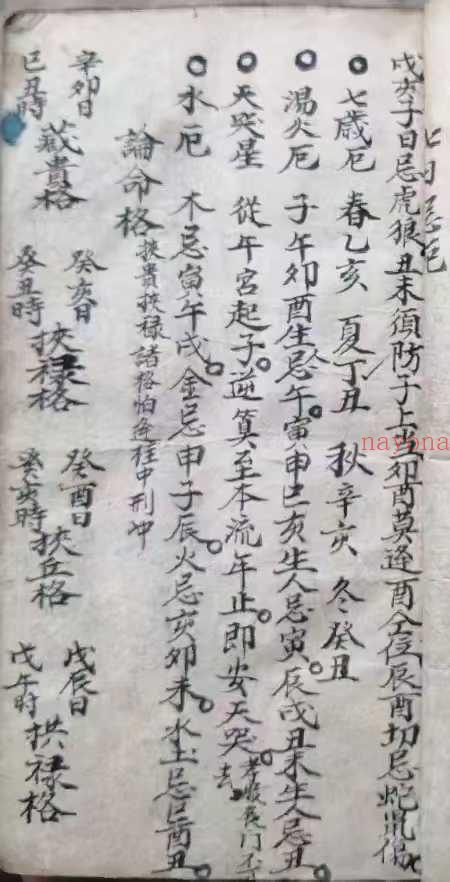 戌亥子日忌虎狼丑未須防子上当卯酉莫逢酉全位辰酉切忌蛇鼠傷
七歲厄 春乙亥 夏丁丑 秋辛亥 冬癸丑
湯火厄 子午卯酉生人忌午寅申巳亥生人忌寅辰戌丑未生人忌丑
天哭星 從午宮起子逆算至本流年止即安天哭
水厄 木忌寅午戌金忌申子辰火忌亥卯未水土忌巳酉丑
論命格 挾貴挾祿諸格怕逢柱中刑冲
辛卯日 癸亥日 癸酉日 戊辰日
藏貴格 挾祿格 挾丘格 拱祿格
己丑時 癸丑時 癸亥時 戊午時
nayona